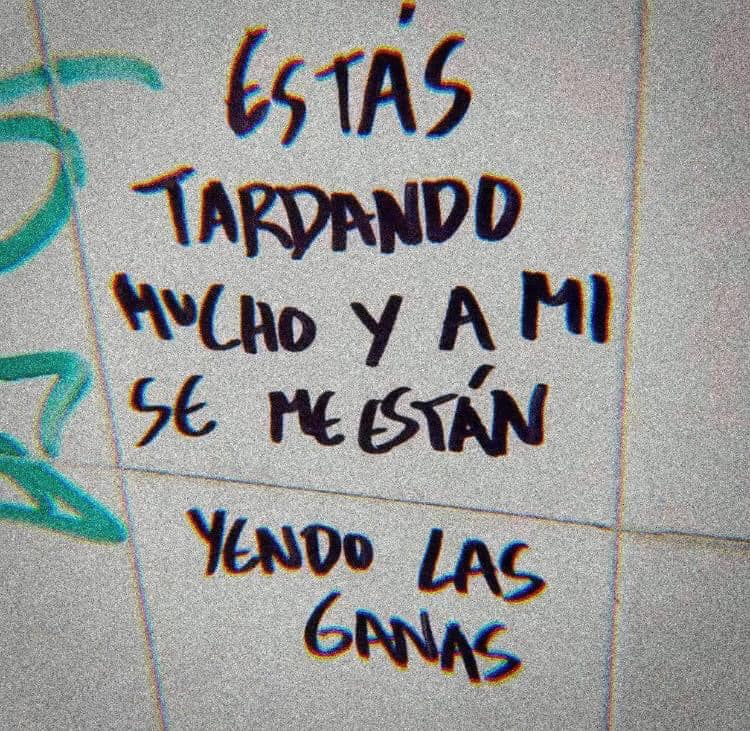 ESTÁS
TARDANDO
MUCHO Y A MI
SE ME ESTÁN
YENDO LAS
GANAS